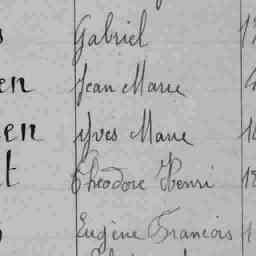 Gabriel
en Jean Marie
en Yves Marie
t Théodore Henri
Eugène Francois